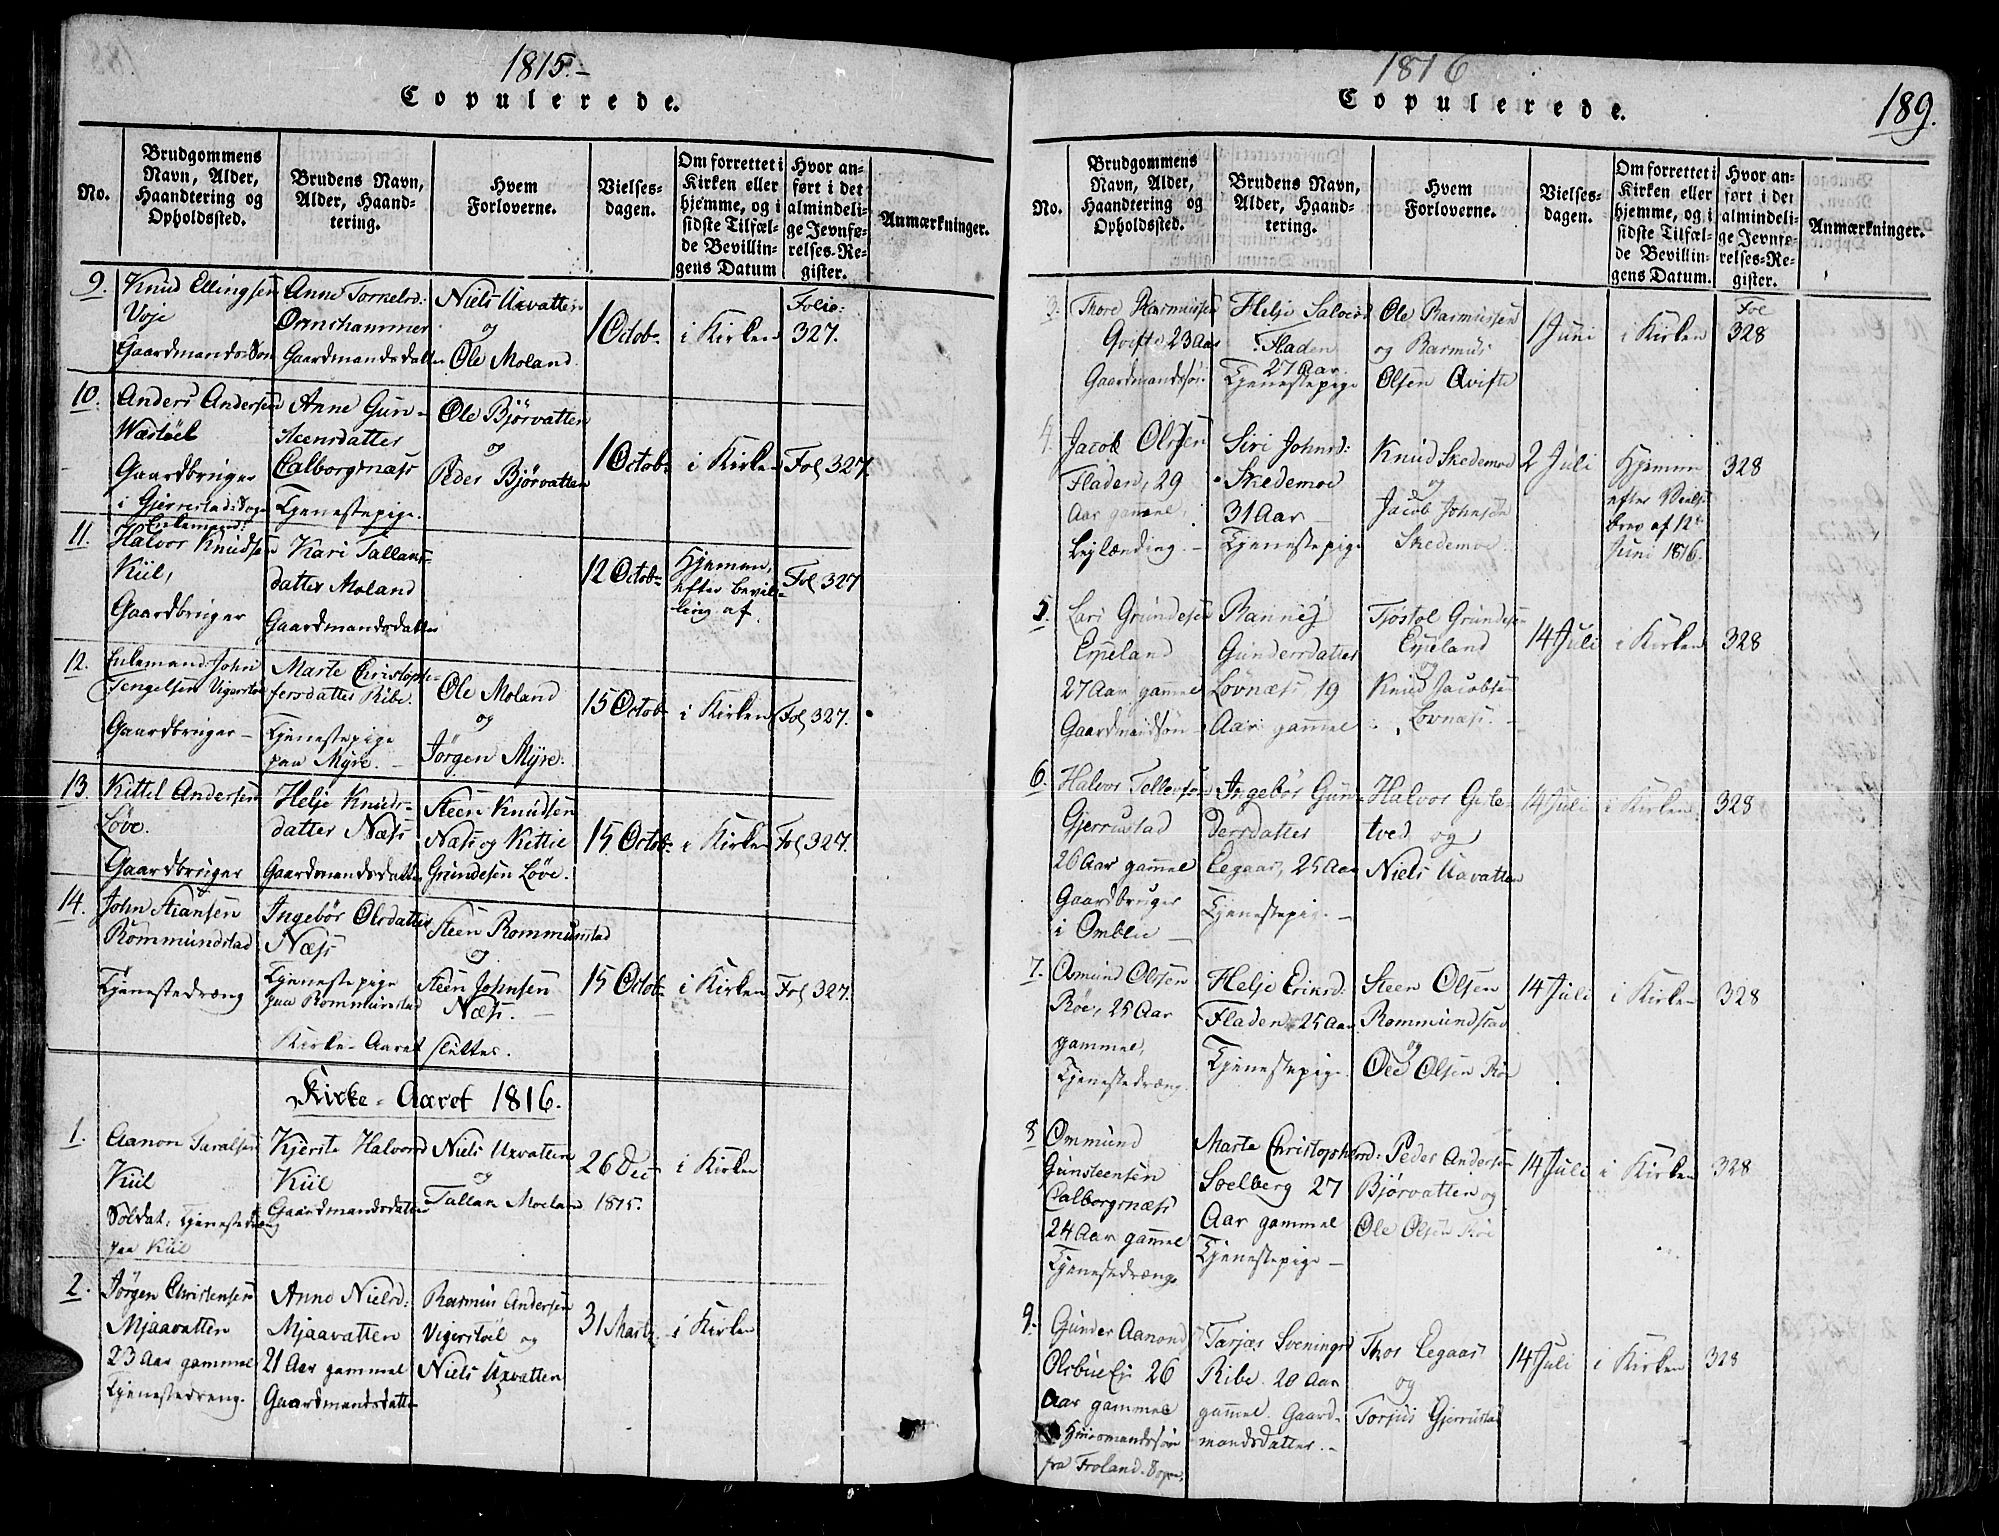 1815.-
Copulerede.
No.
Brudgommens
Navn, Alder,
Haandtering og
Opholdssted.
Brudens Navn,
Alder, Haand-
tering.
Hvem
Forloverne.
Vielses-
dagen.
Om forrettet i
Kirken eller
hjemme, og i
sidste Tilfæl-
de Bevillin-
gens Datum
Hvor an-
ført i det
almindeli-
ge Jevnfø-
relses-Re-
gister.
Anmærkninger.
9.
Knud Ellingsen
Voje
Gaardmands Søn
Anne Torkelsd:
Ormshammer
Gaardmandsdatter
Niels Uxvatten
og
Ole Moland.
1 Octob:
i Kirken
Folio:
327.
10.
Anders Andersen
Wæstøel
Gaardbruger
i Gjerrestads Sogn
Anne Gun-
steensdatter
Calborgsnæss
Tjenestepige.
Ole Bjørvatten
og
Peder Bjørvatten
1 Octob:
i Kirken
Fol 327.
11.
Enkemand:
Halvor Knudsen
Kiil,
Gaardbruger
Kari Tallans-
datter Moland
Gaardmandsdatter
12 Octob:
Hjemme,
efter Bevil-
ling af
Fol 327
12.
Enkemand John
Tengelsen Vigerstøl
Gaardbruger-
Marte Christoph-
fersdatter Ribe.
Tjenestepige
paa Myre. -
Ole Moland
og
Jørgen Myre.
15 Octob:
i Kirken
Fol 327.
13.
Kittel Andersen
Løve.
Gaardbruger
Helje Knuds-
datter Næss
Gaardmandsdatter
Steen Knudsen
Næss og Kittil
Grundesen Løve.
15 Octob:
i Kirken
Fol 327.
14.
John Aiansen
Rommundstad
Tjenestedræng
Ingebør Olsdatter
Næss
Tjenestepige
paa Rommunstad
Steen Rommunstad
og
Steen Johnsen
Næss.
15 Octob:
i Kirken
Fol 327.
Kirke-Aaret slutter.
Kirke-Aaret 1816.
1.
Aanon Taralsen
Kiil
Soldat, Tjenestedreng
paa Kiil
Kjerste Halvord
Kiil
Gaardmandsdatter
Niels Uxvatten
og
Tallan Moeland
26 Dec
1815.
i Kirken
2.
Jørgen Christensen
Mjaavatten
23 Aar gammel
Tjenestedreng.
Anne Nielsd:
Mjaavatten
21 Aar gammel
Gaardmandsdatter
Rasmus Andersen
Vigerstøel og
Niels Uxvatten
31 Marts
i Kirken
1816
Copulerede.
189.
No.
Brudgommens
Navn, Alder,
Haandtering og
Opholdssted.
Brudens Navn,
Alder, Haand-
tering.
Hvem
Forloverne.
Vielses-
dagen.
Om forrettet i
Kirken eller
hjemme, og i
sidste Tilfæl-
de Bevillin-
gens Datum.
Hvor an-
ført i det
almindeli-
ge Jevnfø-
relses-Re-
gister.
Anmærkninger.
3.
Thore Rasmussen
Qvifte 23 Aar
Gaardmandssøn
Helje Salvesd
Fladen
27 Aar.
Tjenestepige
Ole Rasmussen
og Rasmus
Olsen Qvifte
1 Juni
i Kirken
Fol
328
4.
Jacob Olsen
Fladen, 29
Aar gammel,
Lejlænding. -
Siri Johnsd:
Skedemoe
31 Aar -
Tjenestepige
Knud Skedemoe
og
Jacob Johnsøn
Skedemoe.
2 Juli
Hjemme
efter Vielse
brev af 12te
Juni 1816.
328
5.
Lars Grundesen
Espeland
27 Aar gammel
Gaardmandsøn
Rannej
Gundersdatter
Lovnæss 19
Aar gammel
Tjøstol Grundesen
Espeland
og
Knud Jacobsen
Lovnæss. -
14 Juli
i Kirken
328
6.
Halvor Tellevsøn
Gjerrustad
26 Aar gammel
Gaardbruger
i Omblie -
Ingebør Gun-
dersdatter
Eegaas, 25 Aar
Tjenestepige -
Halvor Gule
tved og
Niels Uxvatten
14 Juli
i Kirken
328
7.
Osmund Olssen
Røe, 25 Aar
gammel,
Tjenestedræng
Helje Eriksd:
Fladen 25 Aar
Tjenestepige.
Steen Olsen
Rommundstad
og
Ole Olsen Røe
14 Juli
i Kirken
328
8
Ommund
Gunsteensen
Calborgsnæss
24 Aar gammel
Tjenestedræng
Marte Christophersd:
Soelberg 27
Aar gammel
Tjenestepige -
Peder Andersen
Bjørvatten og
Ole Olsen Røe
14 Juli
i Kirken
328
9.
Gunder Aanond
Olsbue Ej 26
Aar gammel
Huusmandssøn
fra Froland Sogn.
Tarjær Svenings
Ribe 20 Aar
gammel. Gaard-
mandsdatter. -
Thor Eegaas
og
Torjus Gjerrustad
14 Juli
i Kirken
328